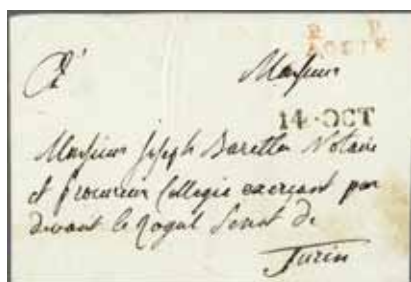 P. P.
AOSTE
A
Monsieur
14 OCT
Monsieur Joseph Baretta Notaire
et Procureur Collegié exerçant par
devant le Royal Senat de
Turin